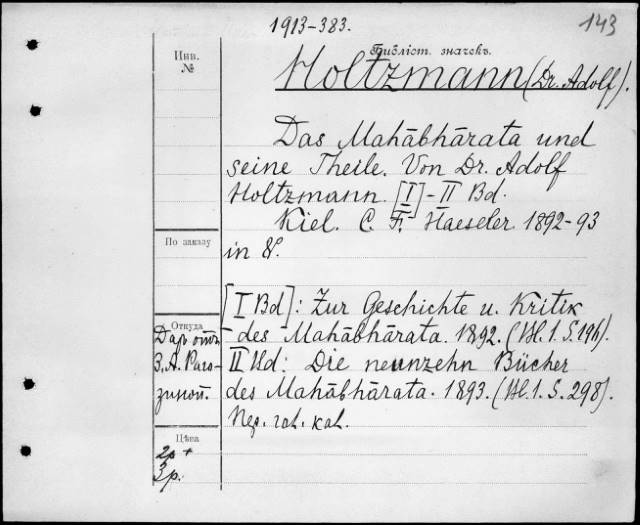 1913-383.
143
Инв.
№
Библіот. значекъ.
Holtzmann (Dr. Adolf).
Das Mahābhārata und
seine Theile. Von Dr. Adolf
Holtzmann. [I]-II Bd.
Kiel. C. F. Haeseler. 1892-93
По заказу
in 8º.
[I Bd]: Zur Geschichte u. Kritik
Откуда
Даръ отъ
des Mahābhārata. 1892. (Bl. 1. S. 196).
З. А. Раго-
II Bd: Die neunzehn Bücher
зиной.
des Mahābhārata. 1893. (Bl. 1. S. 298).
Пер.
Цѣна
2р +
3р.